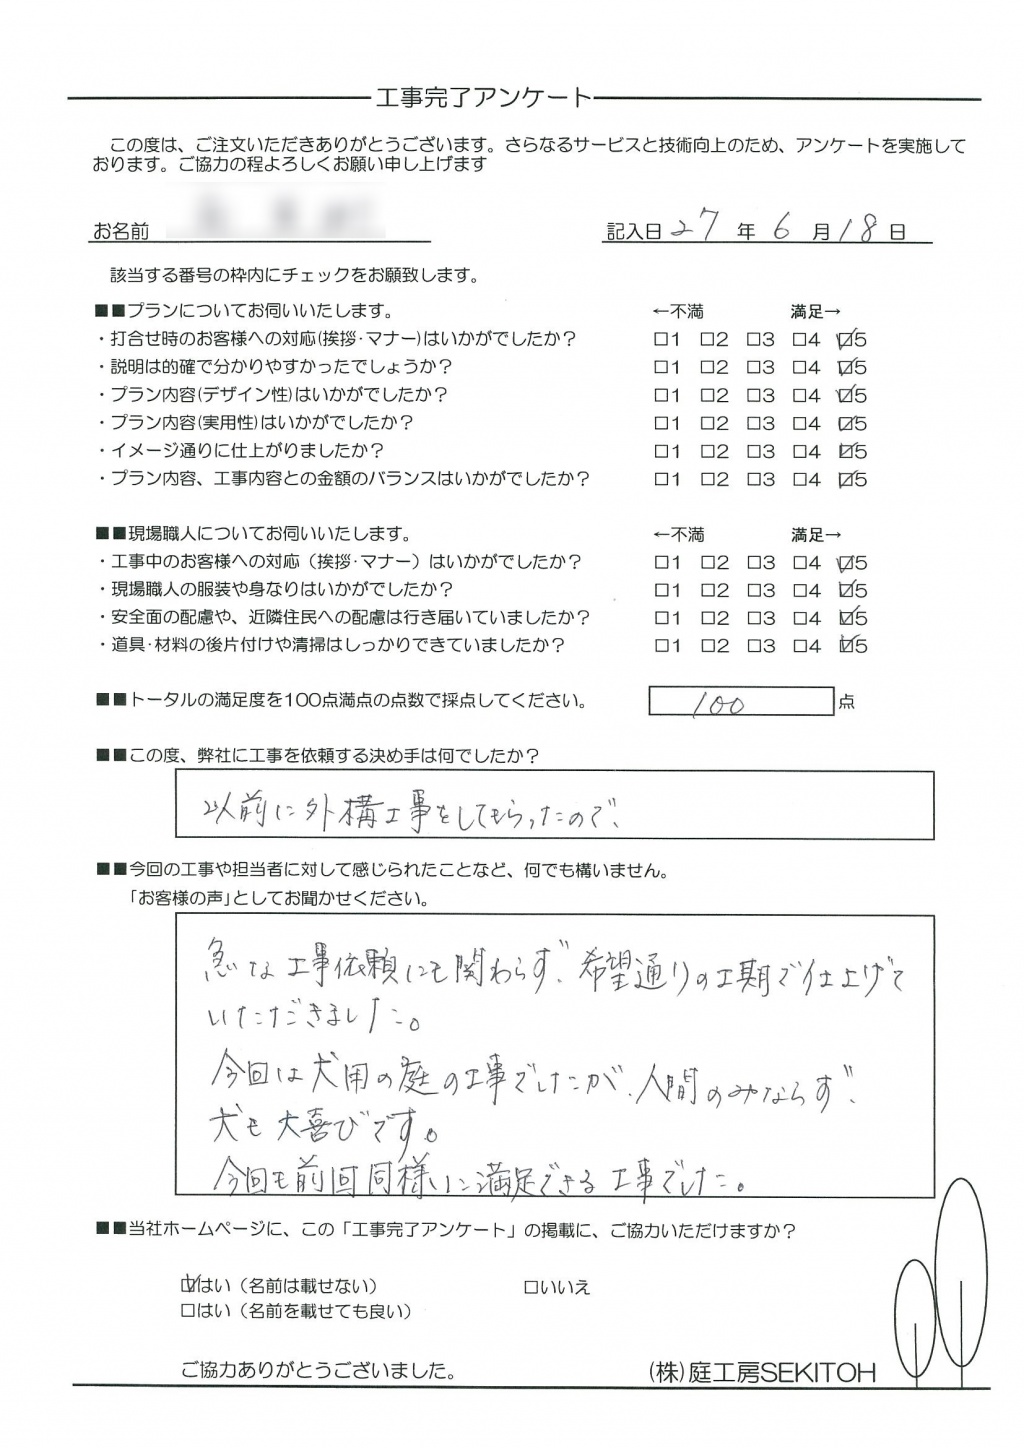 工事完了アンケート
この度は、ご注文いただきありがとうございます。さらなるサービスと技術向上のため、アンケートを実施して
おります。ご協力の程よろしくお願い申し上げます
お名前 記入日 27 年 6 月 18 日
該当する番号の枠内にチェックをお願致します。
■■プランについてお伺いいたします。 ←不満 満足→
・打合せ時のお客様への対応(挨拶・マナー)はいかがでしたか？ □1 □2 □3 □4 ☑5
・説明は的確で分かりやすかったでしょうか？ □1 □2 □3 □4 ☑5
・プラン内容(デザイン性)はいかがでしたか？ □1 □2 □3 □4 ☑5
・プラン内容(実用性)はいかがでしたか？ □1 □2 □3 □4 ☑5
・イメージ通りに仕上がりましたか？ □1 □2 □3 □4 ☑5
・プラン内容、工事内容との金額のバランスはいかがでしたか？ □1 □2 □3 □4 ☑5
■■現場職人についてお伺いいたします。 ←不満 満足→
・工事中のお客様への対応（挨拶・マナー）はいかがでしたか？ □1 □2 □3 □4 ☑5
・現場職人の服装や身なりはいかがでしたか？ □1 □2 □3 □4 ☑5
・安全面の配慮や、近隣住民への配慮は行き届いていましたか？ □1 □2 □3 □4 ☑5
・道具・材料の後片付けや清掃はしっかりできていましたか？ □1 □2 □3 □4 ☑5
■■トータルの満足度を100点満点の点数で採点してください。 100 点
■■この度、弊社に工事を依頼する決め手は何でしたか？
以前に外構工事をしてもらったので、
■■今回の工事や担当者に対して感じられたことなど、何でも構いません。
「お客様の声」としてお聞かせください。
急な工事依頼にも関わらず、希望通りの工期で仕上げて
いただきました。
今回は犬用の庭の工事でしたが、人間のみならず、
犬も大喜びです。
今回も前回同様に満足できる工事でした。
■■当社ホームページに、この「工事完了アンケート」の掲載に、ご協力いただけますか？
☑はい（名前は載せない） □いいえ
□はい（名前を載せても良い）
ご協力ありがとうございました。 (株)庭工房SEKITOH